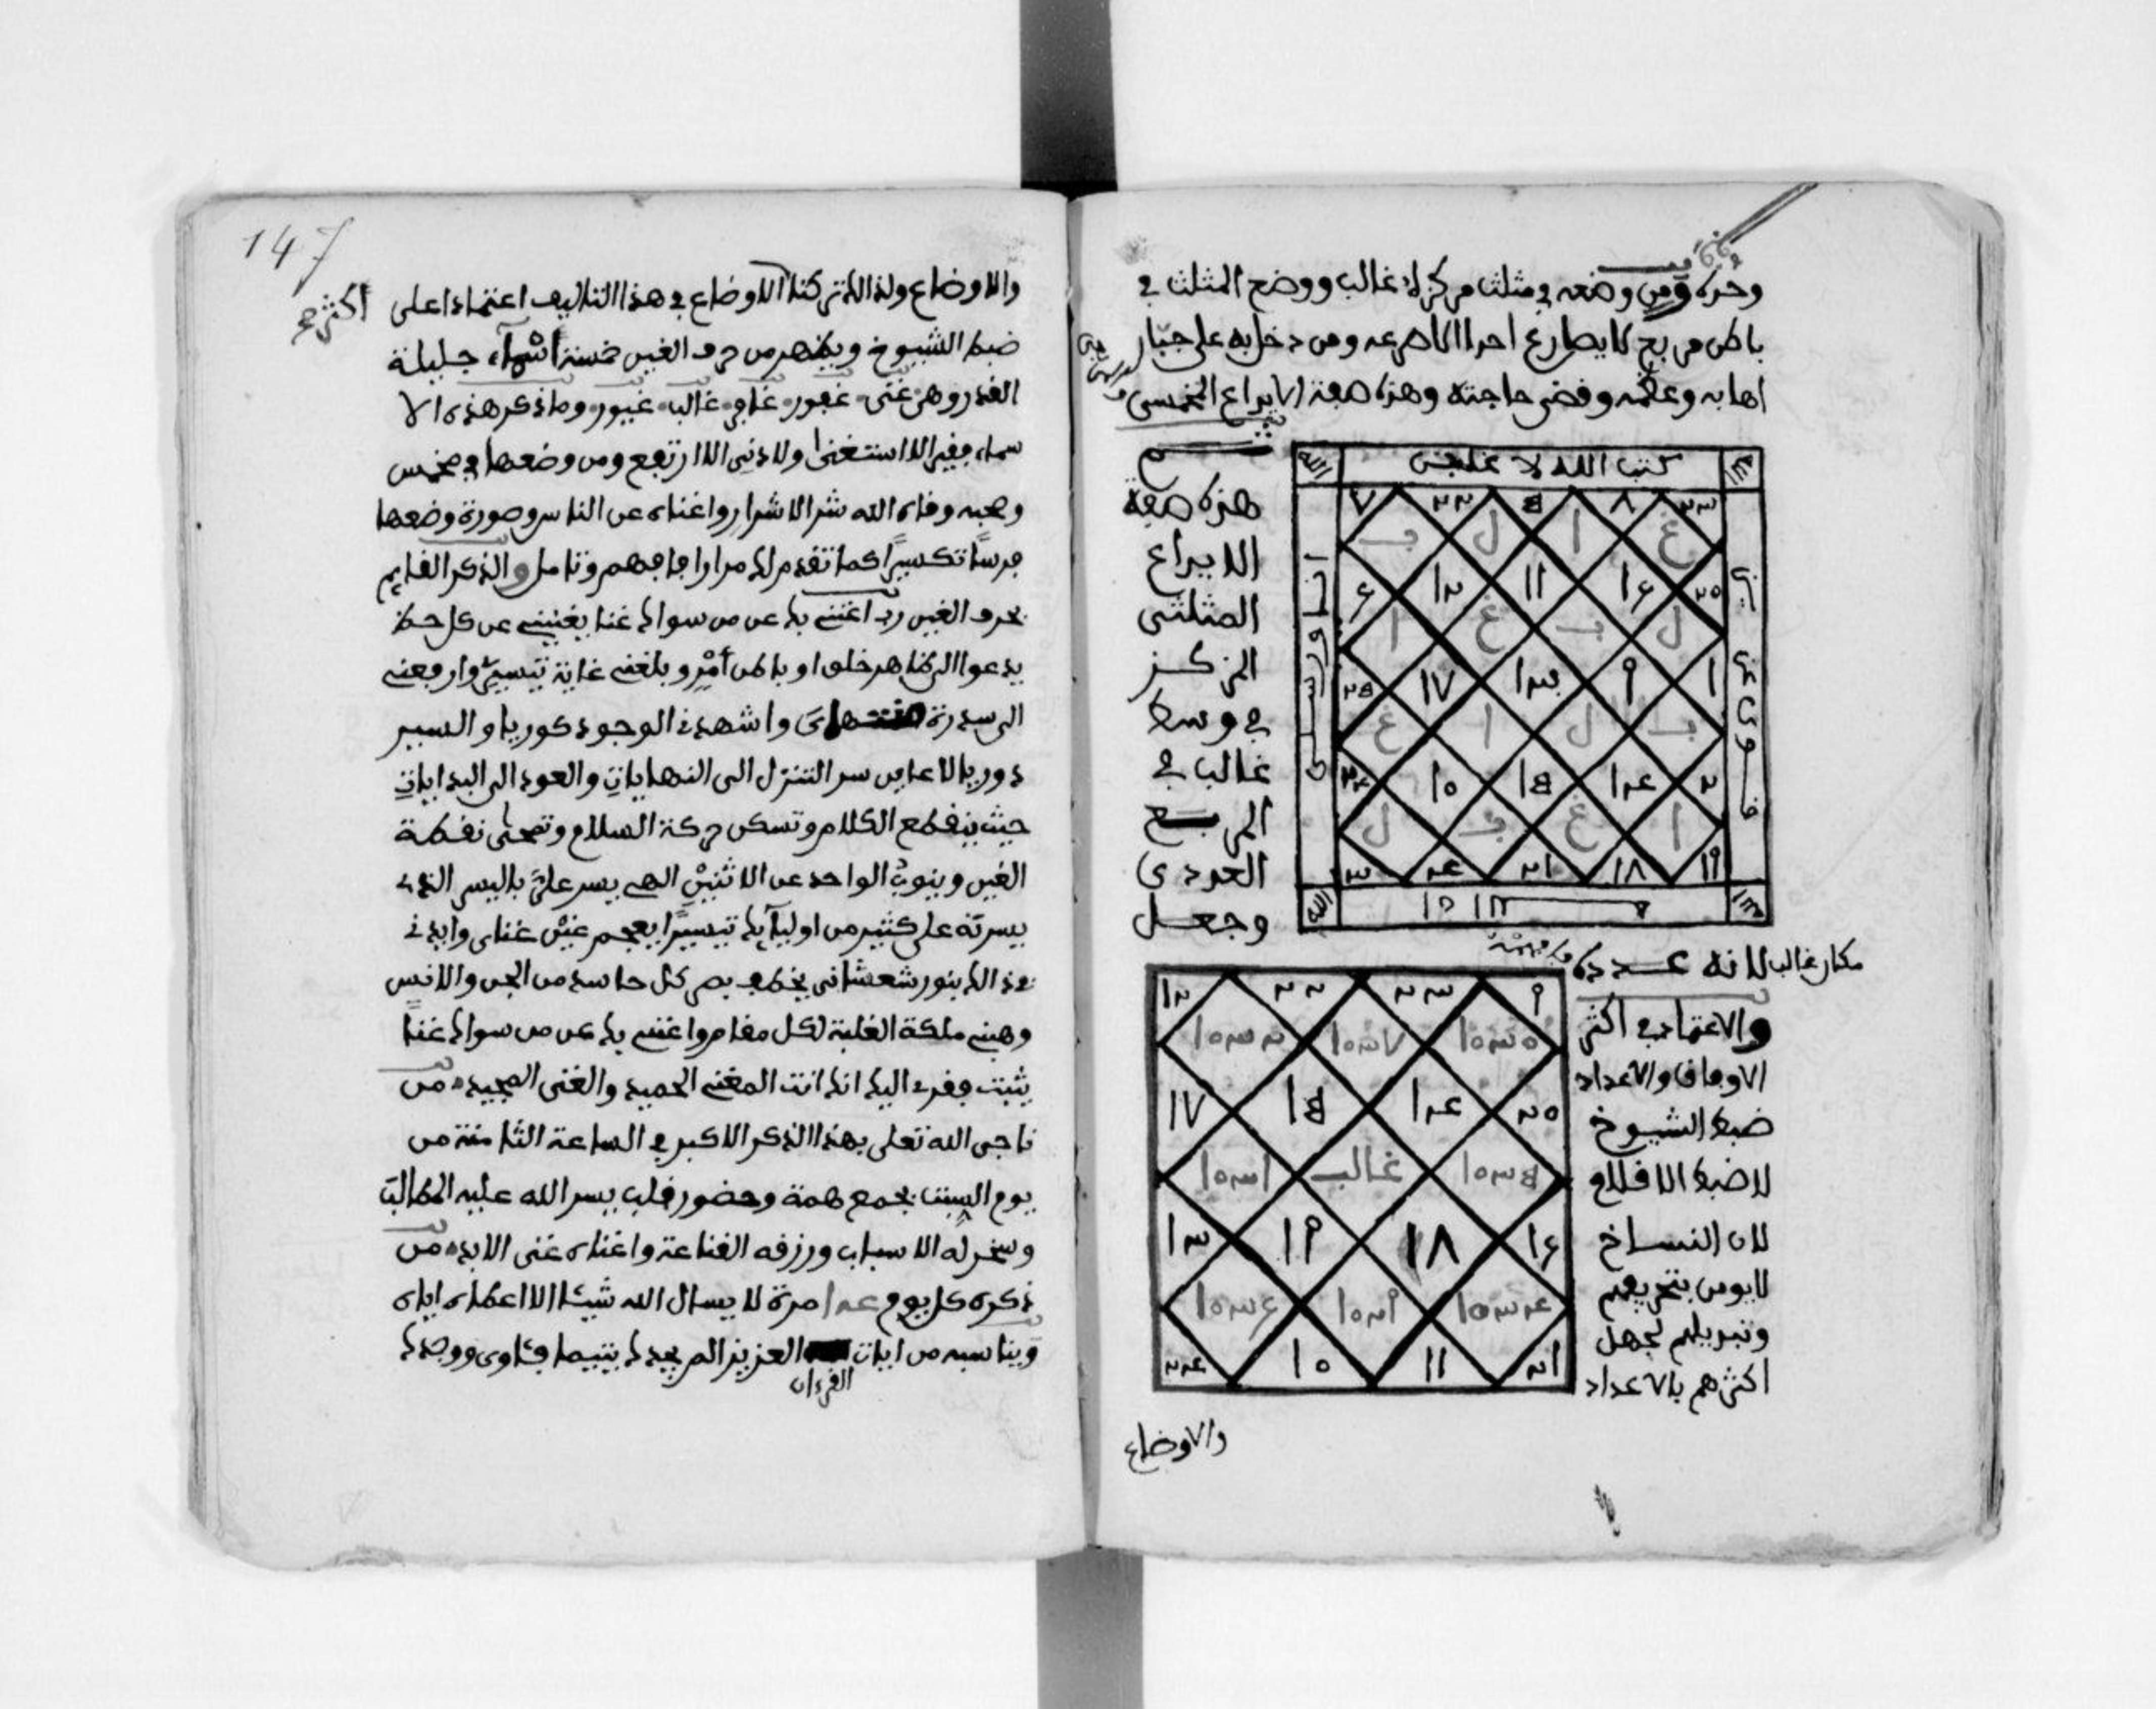 وحده ومن وضعه في مثلث مركزه غالب ووضع المثلث في
باطن مربع لا يصارع احدا الا صرعه ومن دخل به على جبار
اهابه وعظمه وقضى حاجته وهذه صفة الابداع المخمسى
كتب الله لا غلبن
انا ورسلى
الله
٧ ٢٢ ٥ ٨ ٢٣
ب ل ا غ
٦ ١٢ ١١ ١٦ ٢٠
ا غ ب ل
١٧ ١٣ ٩ ١
غ ا ل ب
١٠ ١٥ ١٤ ٢
ل ب غ ا
٣ ٤ ٢١ ١٨ ١٩
هذه صفة
الابداع
المثلثى
المركز
في وسط
غالب في
المربع
العددى
وجعل
مكان غالب لانه عدده
١٢ ٢٢ ٢٣ ٩
١٧ ١٥ ١٤ ٢٠
غالب
١٣ ١٩ ١٨ ١٦
٢٤ ١٠ ١١ ٢١
والاعتماد في اكثر
الاوفاق والاعداد
ضبط الشيوخ
لا ضبط الاقلام
لان النساخ
لا يومن بتحريفهم
وتبديلهم لجهل
اكثرهم بالاعداد
والاوضاع
147
والاوضاع ولذالك تركنا الاوضاع في هذا التاليف اعتمادا على
ضبط الشيوخ ويظهر من حرف الغين خمسة اسماء جليلة
القدر وهي غنى غفور غافر غالب غيور وما ذكر هذه الا
سماء فقير الا استغنى ولا دنى الا ارتفع ومن وضعها في مخمس
وصحبه وقاه الله شر الاشرار واغناه عن الناس وصورة وضعها
حرسا تكسيرا كما تقدم لك مرارا فافهم وتامل والذكر القايم
بحرف الغين رب اغننى بك عن من سواك غنا يغنينى عن كل حظ
يدعوا الى ظاهر خلق او باطن أمر وبلغنى غاية تيسيرى وارفعنى
الى سدرة واشهدنى الوجود كوريا والسير
دوريا لاعاين سر التنزل الى النهايات والعود الى البدايات
حيث ينقطع الكلام وتسكن حركة السلام وتمحى نقطة
الغين وينوب الواحد عن الاثنين الهى يسر علي باليسر الذى
يسرته على كثير من اوليآيك تيسيرا يعجم غين غناى وايدنى
في ذالك بنور شعشانى يخطف بصر كل حاسد من الجن والانس
وهبنى ملكة الغلبة لكل مقام واغننى بك عن من سواك غنا
يثبت فقرى اليك انك انت المغنى الحميد والغنى المجيد من
ناجى الله تعلى بهذا الذكر الاكبر في الساعة الثامنة من
يوم السبت بجمع همة وحضور قلب يسر الله عليه المطالب
وسخر له الاسباب ورزقه القناعة واغناه غنى الابد من
ذكره كل يوم مرة لا يسال الله شيئا الا اعطاه اياه
ويناسبه من ايات القرءان العزيز الم يجدك يتيما فئاوى ووجدك